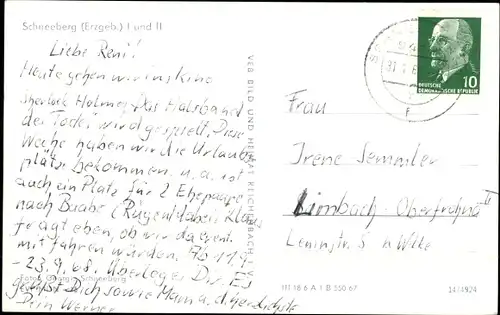 Schneeberg (Erzgeb.) I und II
Liebe Reni!
Heute gehen wir ins Kino
Sherlock Holmes „Das Halsband
des Todes" wird gespielt. Diese
Woche haben wir die Urlaubs-
plätze bekommen. u. a. ist
auch ein Platz für 2 Ehepaare
nach Baabe (Rügen) dabei. Klaus
fragt eben, ob wir da event.
mitfahren würden. Ab 11.9.
-23.9.68. Überlege Dir. Es
grüßt Dich sowie Mama
Dein Werner
Fotos: Georgi, Schneeberg
VEB BILD UND HEIMAT REICHENBACH I. V.
DEUTSCHE
DEMOKRATISCHE REPUBLIK
10
Frau
Irene Semmler
Limbach-Oberfrohna II
Leninstr. 5 b. Wilke
III 18 6 A 1 B 350 67
14/4924